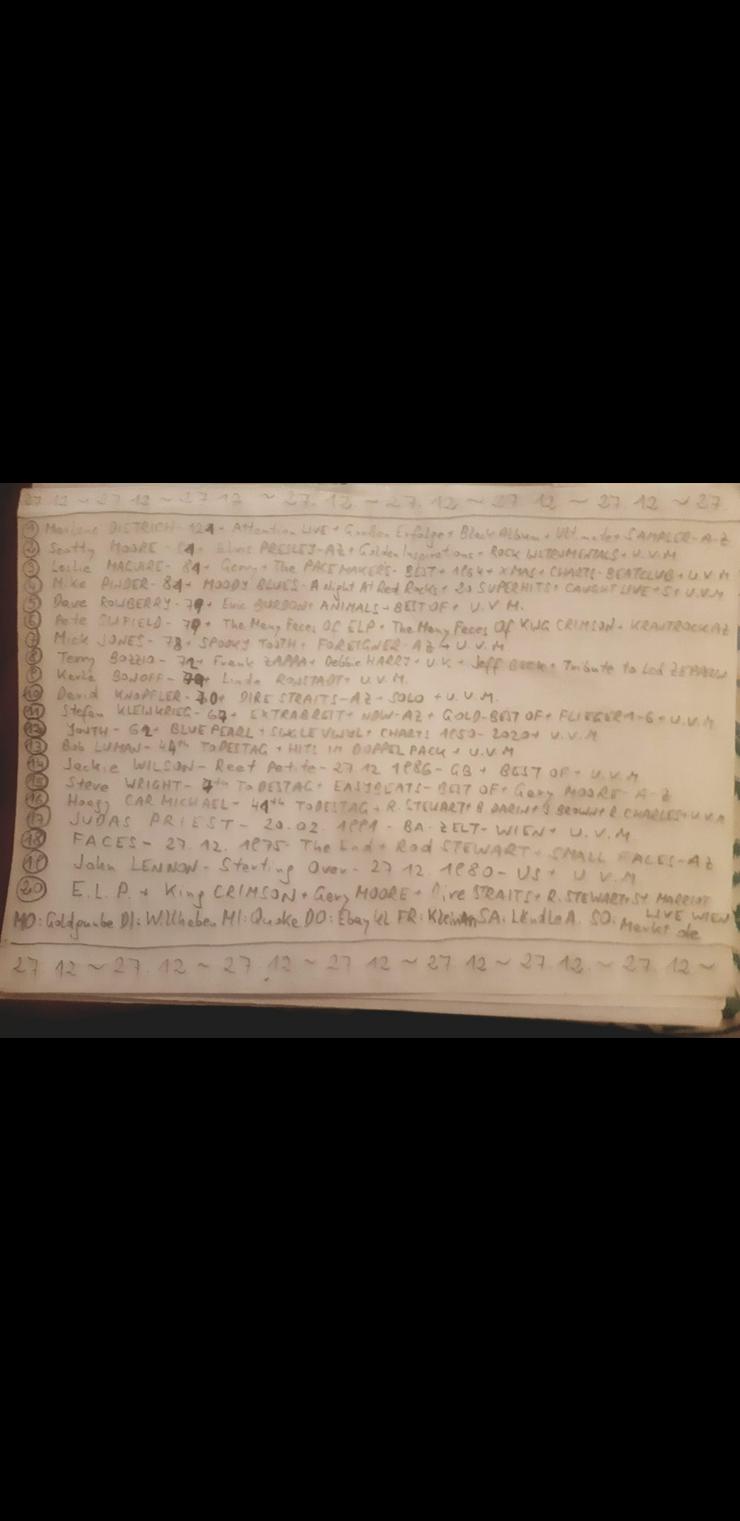 27.12 ~ 27.12 ~ 27.12 ~ 27.12 ~ 27.12 ~ 27.12 ~ 27.12 ~ 27
① Marlene DIETRICH - 121 - Attention LIVE + Großen Erfolge + Black Album + Ultimate + SAMPLER - A-Z
② Scotty MOORE - + Elvis PRESLEY - AZ + Golden Inspirations + ROCK INSTRUMENTALS + U.V.M
③ Leslie MAGUIRE - 81 + Gerry + The PACEMAKERS - BEST + 1964 + XMAS + CHARTS - BEATCLUB + U.V.M
④ Mike PINDER - 81 + MOODY BLUES - A Night At Red Rocks + 20 SUPERHITS + CAUGHT LIVE + 5 + U.V.M
⑤ Dave ROWBERRY - 79 + Eric BURDON + ANIMALS + BEST OF + U.V.M.
⑥ Pete SINFIELD - 79 + The Many Faces Of ELP + The Many Faces Of KING CRIMSON + KRAUTROCK AZ
⑦ Mick JONES - 78 + SPOOKY TOOTH + FOREIGNER - AZ + U.V.M
⑧ Terry BOZZIO - 72 + Frank ZAPPA + Debbie HARRY + U.K. + Jeff BECK + Tribute to Led ZEPPELIN
⑨ Karla BONOFF - + Linda RONSTADT + U.V.M.
⑩ David KNOPFLER - 70 + DIRE STRAITS - AZ + SOLO + U.V.M.
⑪ Stefan KLEINKRIEG - 67 + EXTRABREIT + NDW - AZ + GOLD - BEST OF + FLIEGER 1-6 + U.V.M
⑫ YOUTH - 61 + BLUE PEARL + SINGLE VINYL + CHARTS 1950 - 2020 + U.V.M
⑬ Bob LUMAN - 44th TODESTAG + HITS IM DOPPELPACK + U.V.M
⑭ Jackie WILSON - Reet Petite - 27.12.1986 - GB + BEST OF + U.V.M
⑮ Steve WRIGHT - 7th TODESTAG + EASYBEATS - BEST OF + Gary MOORE - A-Z
⑯ Hoagy CARMICHAEL - 41th TODESTAG + R. STEWART + B. DARIN + J. BROWN + R. CHARLES + U.V.M
⑰ JUDAS PRIEST - 20.02.1991 - BA-ZELT - WIEN + U.V.M.
⑱ FACES - 27.12.1975 - The End + Rod STEWART + SMALL FACES - AZ
⑲ John LENNON - Starting Over - 27.12.1980 - US + U.V.M
⑳ E.L.P. + King CRIMSON + Gary MOORE + Dire STRAITS + R. STEWART + ST. MARRIOT LIVE WIEN
MO: Goldgrube DI: Willhaben MI: Quoke DO: Ebay kl FR: KleinAn SA: LändleA. SO: Markt de
27.12 ~ 27.12 ~ 27.12 ~ 27.12 ~ 27.12 ~ 27.12. ~ 27.12 ~